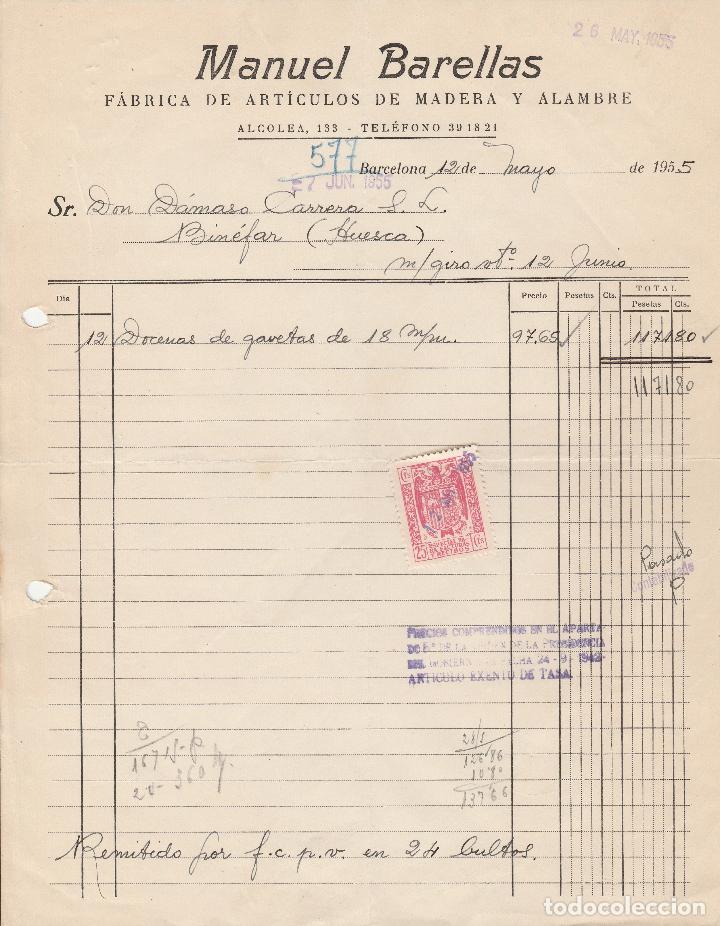 26 MAY. 1955
Manuel Barellas
FÁBRICA DE ARTÍCULOS DE MADERA Y ALAMBRE
ALCOLEA, 133 - TELÉFONO 39 18 21
577
Barcelona 12 de mayo de 1955
27 JUN. 1955
Sr. Don Dámaso Carrera S. L.
Binéfar (Huesca)
m/giro vtº. 12 Junio.
Día Precio Pesetas Cts. TOTAL
Pesetas Cts.
12 Docenas de gavetas de 18 m/m. 97,65 1171 80
1171 80
Cts Cts
25 25
ESPECIAL
Pasado
Contabilizado
PRECIOS COMPRENDIDOS EN EL APARTA-
DO 5º DE LA ORDEN DE LA PRESIDENCIA
DEL GOBIERNO FECHA 24-9-1942-
ARTICULO EXENTO DE TASA.
8
167
28- 360
28/1
126 86
10 80
137 66
Remitido por f.c.p.v. en 24 bultos.
todocoleccion
todocoleccion.net